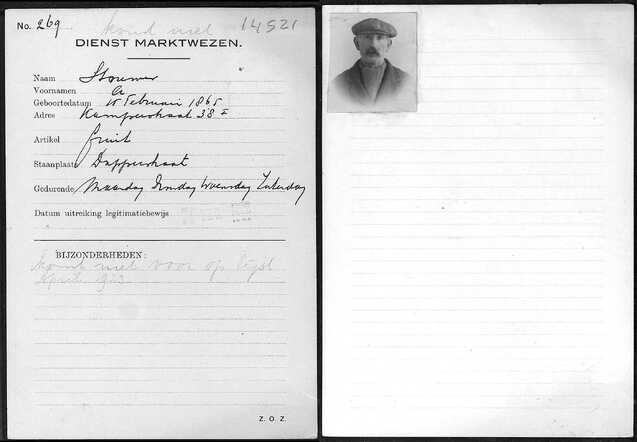 No. 269 komt niet 14521
DIENST MARKTWEZEN.
Naam Stouwer
Voornamen A
Geboortedatum 15 Februari 1865
Adres Kamperstraat 38 I
Artikel fruit
Staanplaats Dapperstraat
Gedurende Maandag Dinsdag Woensdag Zaterdag
Datum uitreiking legitimatiebewijs
BIJZONDERHEDEN:
komt niet voor op lijst
April 1923
Z. O. Z.